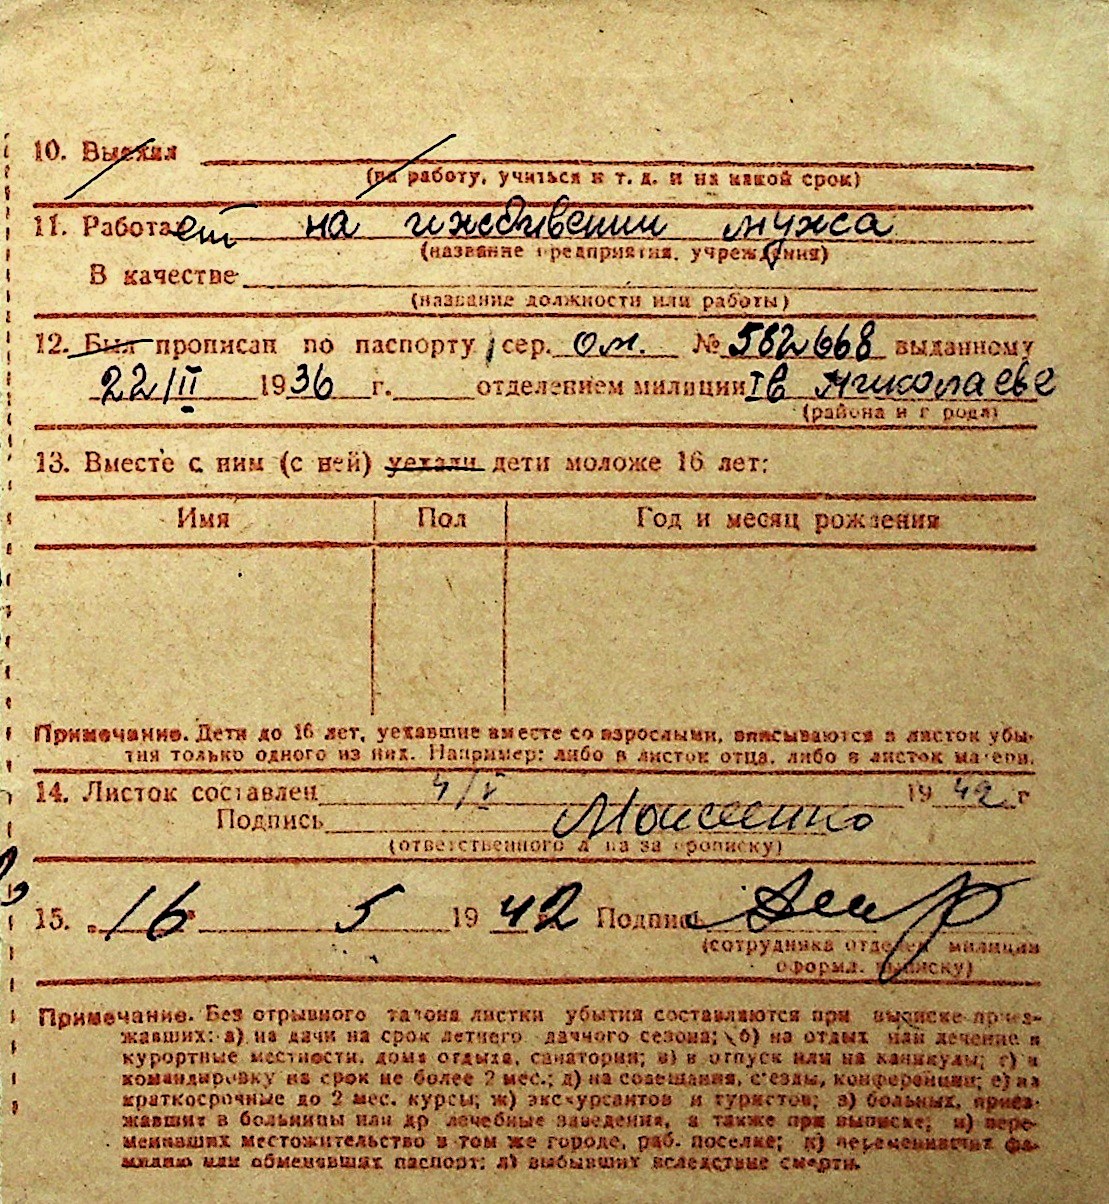 10. Выехал
(на работу, учиться и т. д. и на какой срок)
11. Работает на иждивении мужа
(название предприятия, учреждения)
В качестве
(название должности или работы)
12. Был прописан по паспорту сер. ом. № 582668 выданному
22/II 1936 г. отделением милиции I в Николаеве
(района и города)
13. Вместе с ним (с ней) уехали дети моложе 16 лет:
Имя Пол Год и месяц рождения
Примечание. Дети до 16 лет, уехавшие вместе со взрослыми, вписываются в листок убы-
тия только одного из них. Например: либо в листок отца, либо в листок матери.
14. Листок составлен 4/V 1942 г
Подпись Моисеенко
(ответственного лица за прописку)
15. „16“ 5 1942 Подпись
(сотрудника отделен. милиции
оформл. выписку)
Примечание. Без отрывного талона листки убытия составляются при выписке приез-
жавших: а) на дачи на срок летнего дачного сезона; б) на отдых или лечение в
курортные местности, дома отдыха, санатории; в) в отпуск или на каникулы; г) в
командировку на срок не более 2 мес.; д) на совещания, с'езды, конференции; е) на
краткосрочные до 2 мес. курсы; ж) экскурсантов и туристов; з) больных, приез-
жавших в больницы или др лечебные заведения, а также при выписке; и) пере-
менивших местожительство в том же городе, раб. поселке; к) переменивших фа-
милию или обменявших паспорт; л) выбывших вследствие смерти.